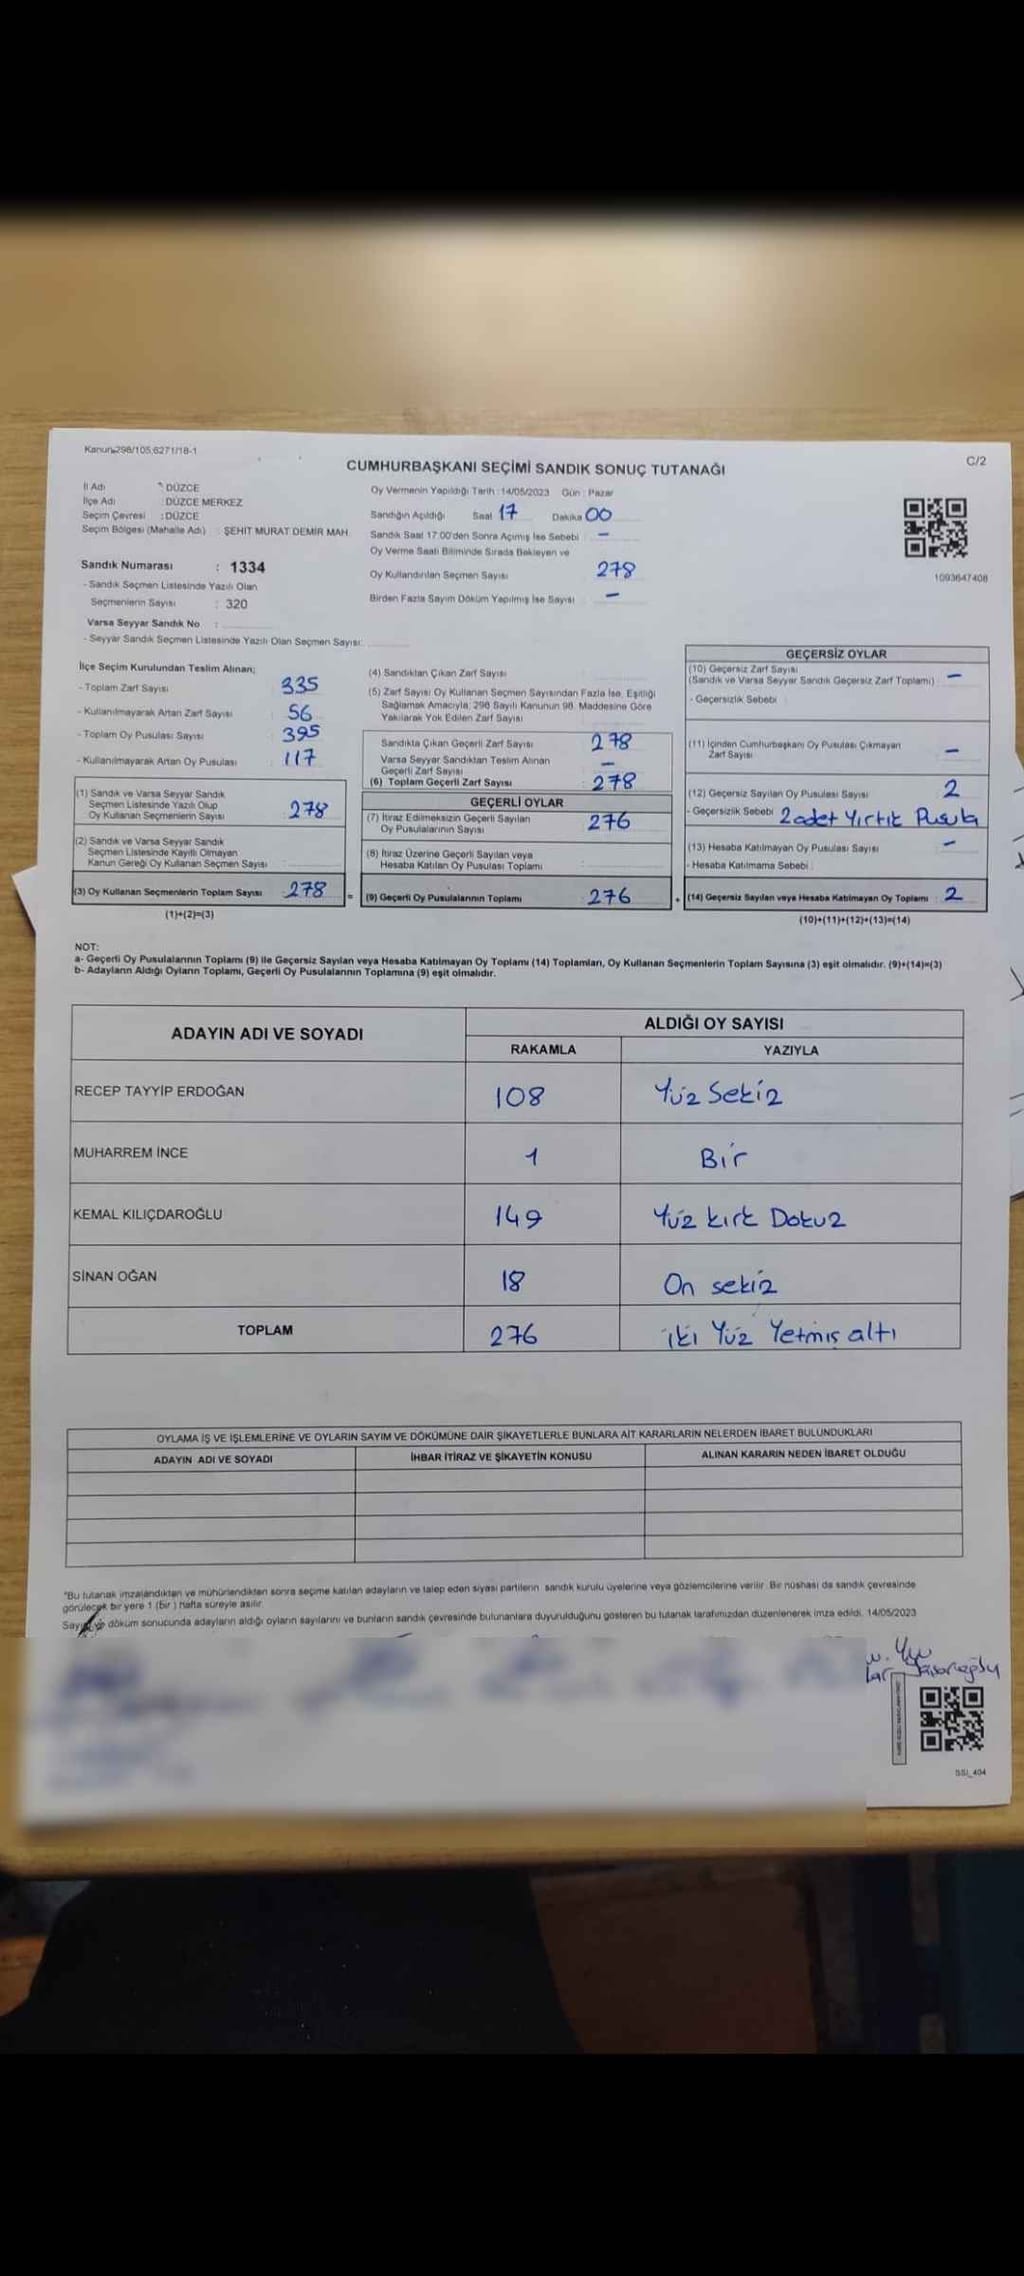 Kanun:298/105,6271/18-1
C/2
CUMHURBAŞKANI SEÇİMİ SANDIK SONUÇ TUTANAĞI
İl Adı : DÜZCE
İlçe Adı : DÜZCE MERKEZ
Seçim Çevresi : DÜZCE
Seçim Bölgesi (Mahalle Adı) : ŞEHİT MURAT DEMİR MAH
Sandık Numarası : 1334
- Sandık Seçmen Listesinde Yazılı Olan
Seçmenlerin Sayısı : 320
Varsa Seyyar Sandık No :
- Seyyar Sandık Seçmen Listesinde Yazılı Olan Seçmen Sayısı:
Oy Vermenin Yapıldığı Tarih : 14/05/2023 Gün : Pazar
Sandığın Açıldığı Saat 17 Dakika 00
Sandık Saat 17:00'den Sonra Açımış İse Sebebi : -
Oy Verme Saati Bitiminde Sırada Bekleyen ve
Oy Kullandırılan Seçmen Sayısı 278
Birden Fazla Sayım Döküm Yapılmış İse Sayısı : -
1093647408
İlçe Seçim Kurulundan Teslim Alınan;
- Toplam Zarf Sayısı : 335
- Kullanılmayarak Artan Zarf Sayısı : 56
- Toplam Oy Pusulası Sayısı : 395
- Kullanılmayarak Artan Oy Pusulası : 117
(1) Sandık ve Varsa Seyyar Sandık
Seçmen Listesinde Yazılı Olup
Oy Kullanan Seçmenlerin Sayısı : 278
(2) Sandık ve Varsa Seyyar Sandık
Seçmen Listesinde Kayıtlı Olmayan
Kanun Gereği Oy Kullanan Seçmen Sayısı :
(3) Oy Kullanan Seçmenlerin Toplam Sayısı : 278
(1)+(2)=(3)
(4) Sandıktan Çıkan Zarf Sayısı :
(5) Zarf Sayısı Oy Kullanan Seçmen Sayısından Fazla İse, Eşitliği
Sağlamak Amacıyla; 298 Sayılı Kanunun 98. Maddesine Göre
Yakılarak Yok Edilen Zarf Sayısı :
Sandıkta Çıkan Geçerli Zarf Sayısı : 278
Varsa Seyyar Sandıktan Teslim Alınan
Geçerli Zarf Sayısı : -
(6) Toplam Geçerli Zarf Sayısı : 278
GEÇERLİ OYLAR
(7) İtiraz Edilmeksizin Geçerli Sayılan
Oy Pusulalarının Sayısı : 276
(8) İtiraz Üzerine Geçerli Sayılan veya
Hesaba Katılan Oy Pusulası Toplamı :
= (9) Geçerli Oy Pusulalarının Toplamı : 276
GEÇERSİZ OYLAR
(10) Geçersiz Zarf Sayısı
(Sandık ve Varsa Seyyar Sandık Geçersiz Zarf Toplamı) : -
- Geçersizlik Sebebi :
(11) İçinden Cumhurbaşkanı Oy Pusulası Çıkmayan
Zarf Sayısı : -
(12) Geçersiz Sayılan Oy Pusulası Sayısı : 2
- Geçersizlik Sebebi 2 adet Yırtık Pusula
(13) Hesaba Katılmayan Oy Pusulası Sayısı : -
- Hesaba Katılmama Sebebi :
+ (14) Geçersiz Sayılan veya Hesaba Katılmayan Oy Toplamı : 2
(10)+(11)+(12)+(13)=(14)
NOT:
a- Geçerli Oy Pusulalarının Toplamı (9) ile Geçersiz Sayılan veya Hesaba Katılmayan Oy Toplamı (14) Toplamları, Oy Kullanan Seçmenlerin Toplam Sayısına (3) eşit olmalıdır. (9)+(14)=(3)
b- Adayların Aldığı Oyların Toplamı, Geçerli Oy Pusulalarının Toplamına (9) eşit olmalıdır.
ADAYIN ADI VE SOYADI ALDIĞI OY SAYISI
RAKAMLA YAZIYLA
RECEP TAYYİP ERDOĞAN 108 Yüz Sekiz
MUHARREM İNCE 1 Bir
KEMAL KILIÇDAROĞLU 149 Yüz kırk Dokuz
SİNAN OĞAN 18 On sekiz
TOPLAM 276 iki Yüz Yetmiş altı
OYLAMA İŞ VE İŞLEMLERİNE VE OYLARIN SAYIM VE DÖKÜMÜNE DAİR ŞİKAYETLERLE BUNLARA AİT KARARLARIN NELERDEN İBARET BULUNDUKLARI
ADAYIN ADI VE SOYADI İHBAR İTİRAZ VE ŞİKAYETİN KONUSU ALINAN KARARIN NEDEN İBARET OLDUĞU
*Bu tutanak imzalandıktan ve mühürlendikten sonra seçime katılan adayların ve talep eden siyasi partilerin sandık kurulu üyelerine veya gözlemcilerine verilir. Bir nüshası da sandık çevresinde
görülecek bir yere 1 (bir) hafta süreyle asılır.
Sayım ve döküm sonucunda adayların aldığı oyların sayılarını ve bunların sandık çevresinde bulunanlara duyurulduğunu gösteren bu tutanak tarafımızdan düzenlenerek imza edildi. 14/05/2023
SSI_404